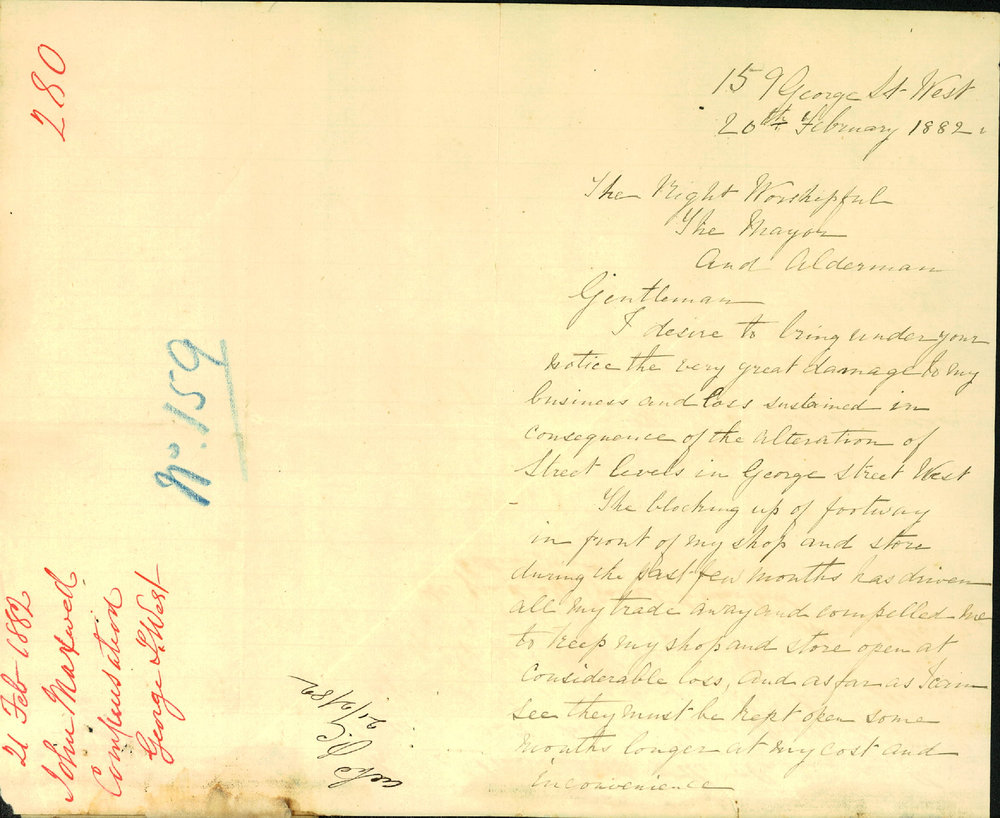 280
21 Feb 1882
John Maxwell
Compensation
George St. West
No. 159
21/2/82
159 George St West
20th February 1882
The Right Worshipful
The Mayor
And Alderman
Gentleman
I desire to bring under your
notice the very great damage to my
business and loss sustained in
consequence of the alteration of
Street levels in George Street West
- The blocking up of footway
in front of my shop and store
during the past few months has driven
all my trade away and compelled me
to keep my shop and store open at
Considerable loss, and as far as I can
see they must be kept open some
months longer at my cost and
inconvenience